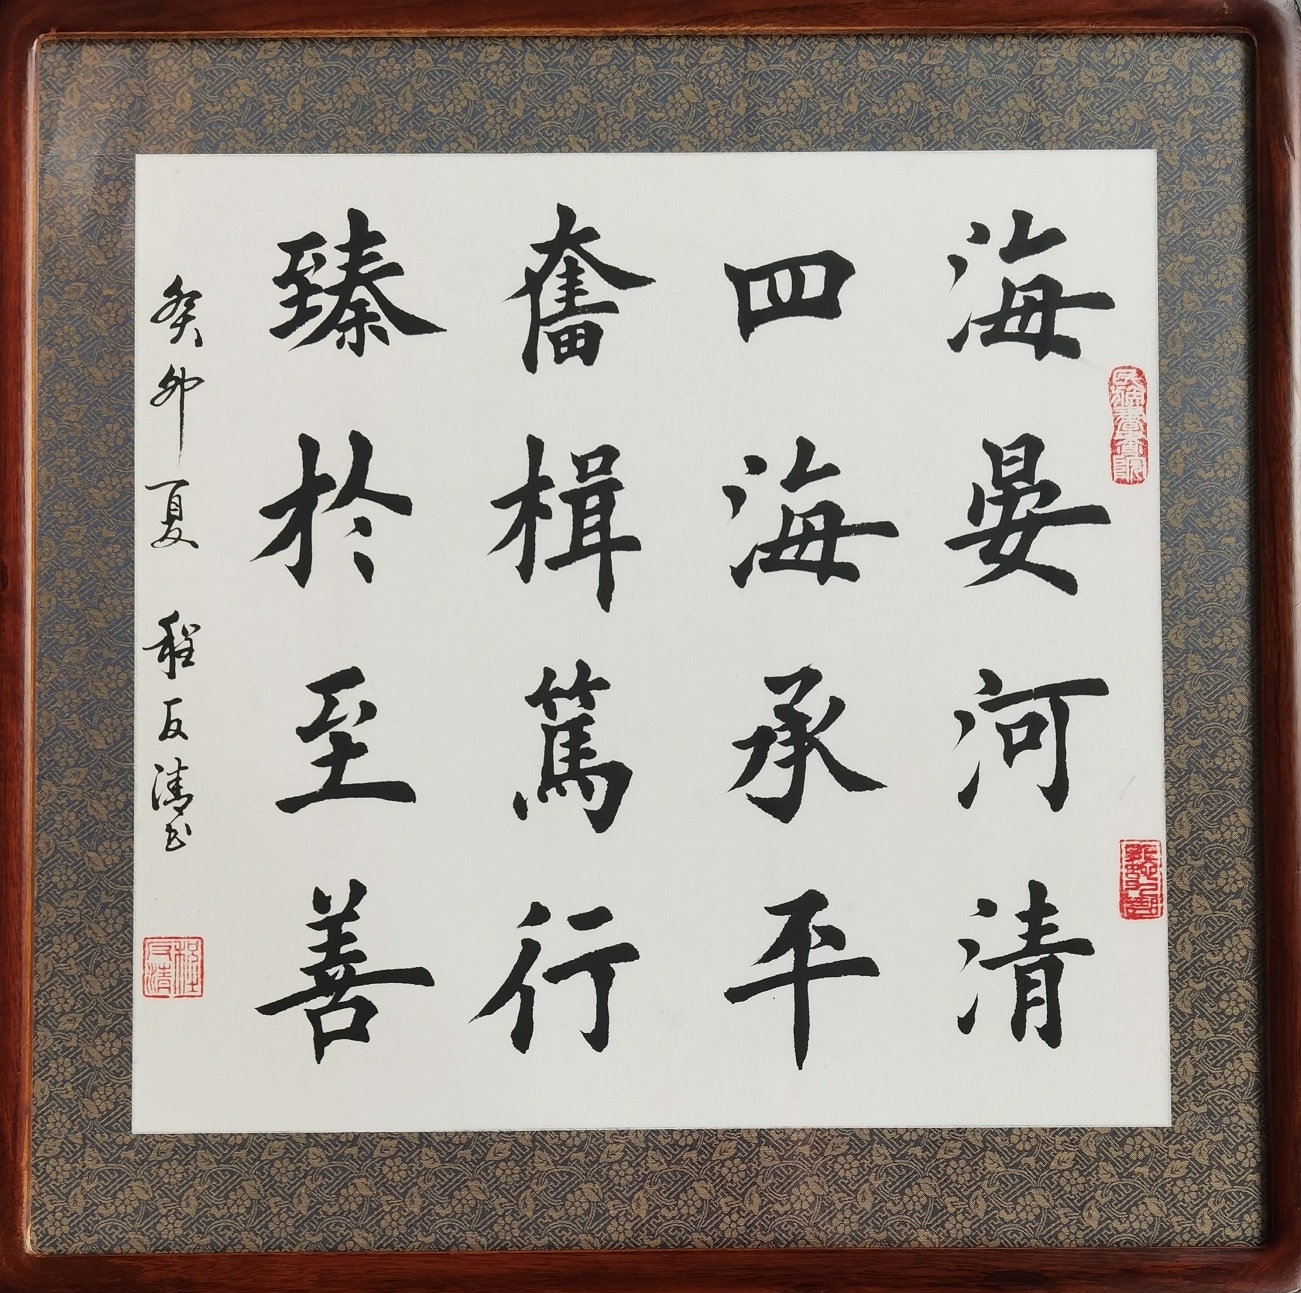 海晏河清
四海承平
奮楫篤行
臻於至善
癸卯夏 程友清书
程友清